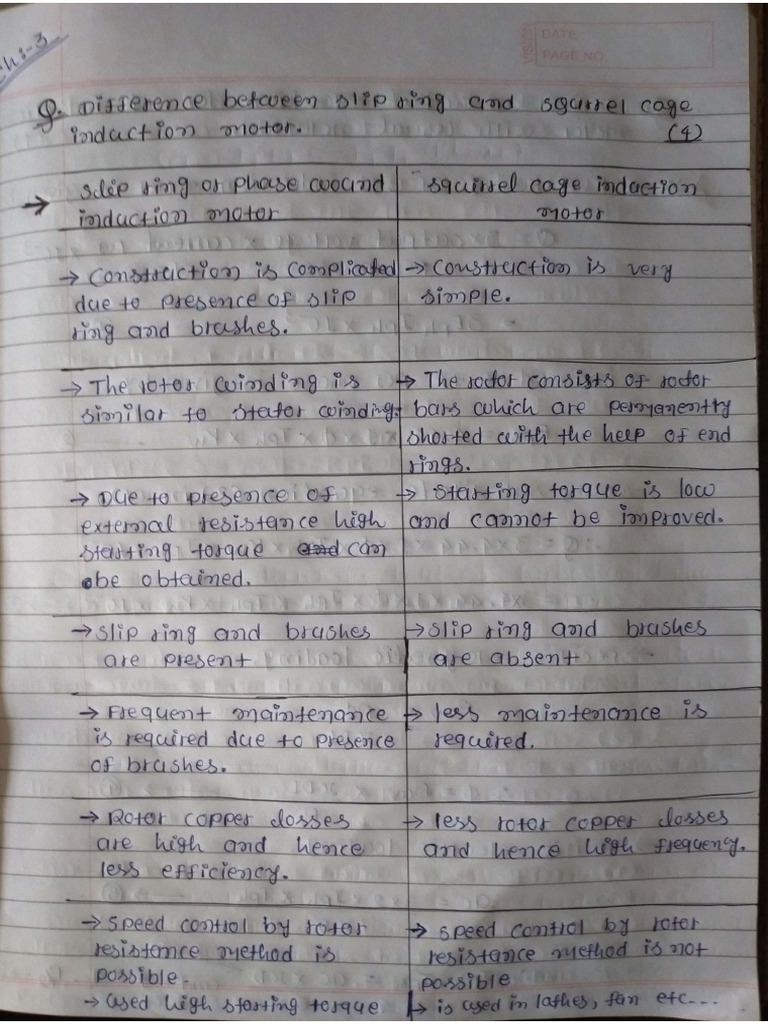 Ch:-3
DATE
PAGE NO.
Q. Difference between slip ring and squrrel cage
induction motor. (4)
→ Slip ring or phase wound
induction motor
squirrel cage induction
motor
→ Construction is complicated
due to presence of slip
ring and brushes.
→ Construction is very
simple.
→ The rotor winding is
similar to stator winding.
→ The rotor consists of rotor
bars which are permanentry
shorted with the help of end
rings.
→ Due to presence of
external resistance high
starting torque can
be obtained.
→ Starting torque is low
and cannot be improved.
→ Slip ring and brushes
are present
→ Slip ring and brushes
are absent
→ Frequent maintenance
is required due to presence
of brushes.
→ less maintenance is
required.
→ Rotor copper losses
are high and hence
less efficiency.
→ less rotor copper losses
and hence high frequency.
→ Speed control by rotor
resistance method is
possible.
→ Speed control by rotor
resistance method is not
possible
→ used high starting torque
→ is used in lathes, fan etc...